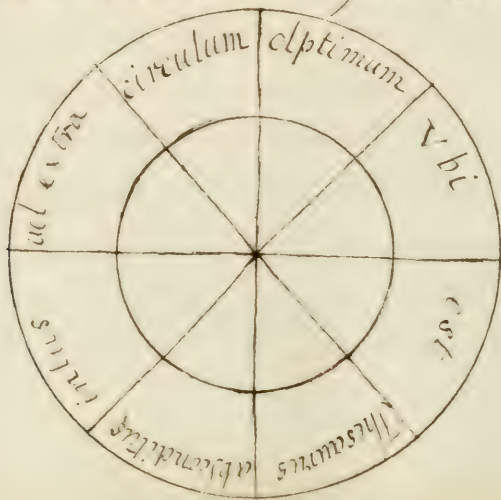 Vbi
est
Thesaurus
absconditus
intus
uel extra
circulum
alptimum